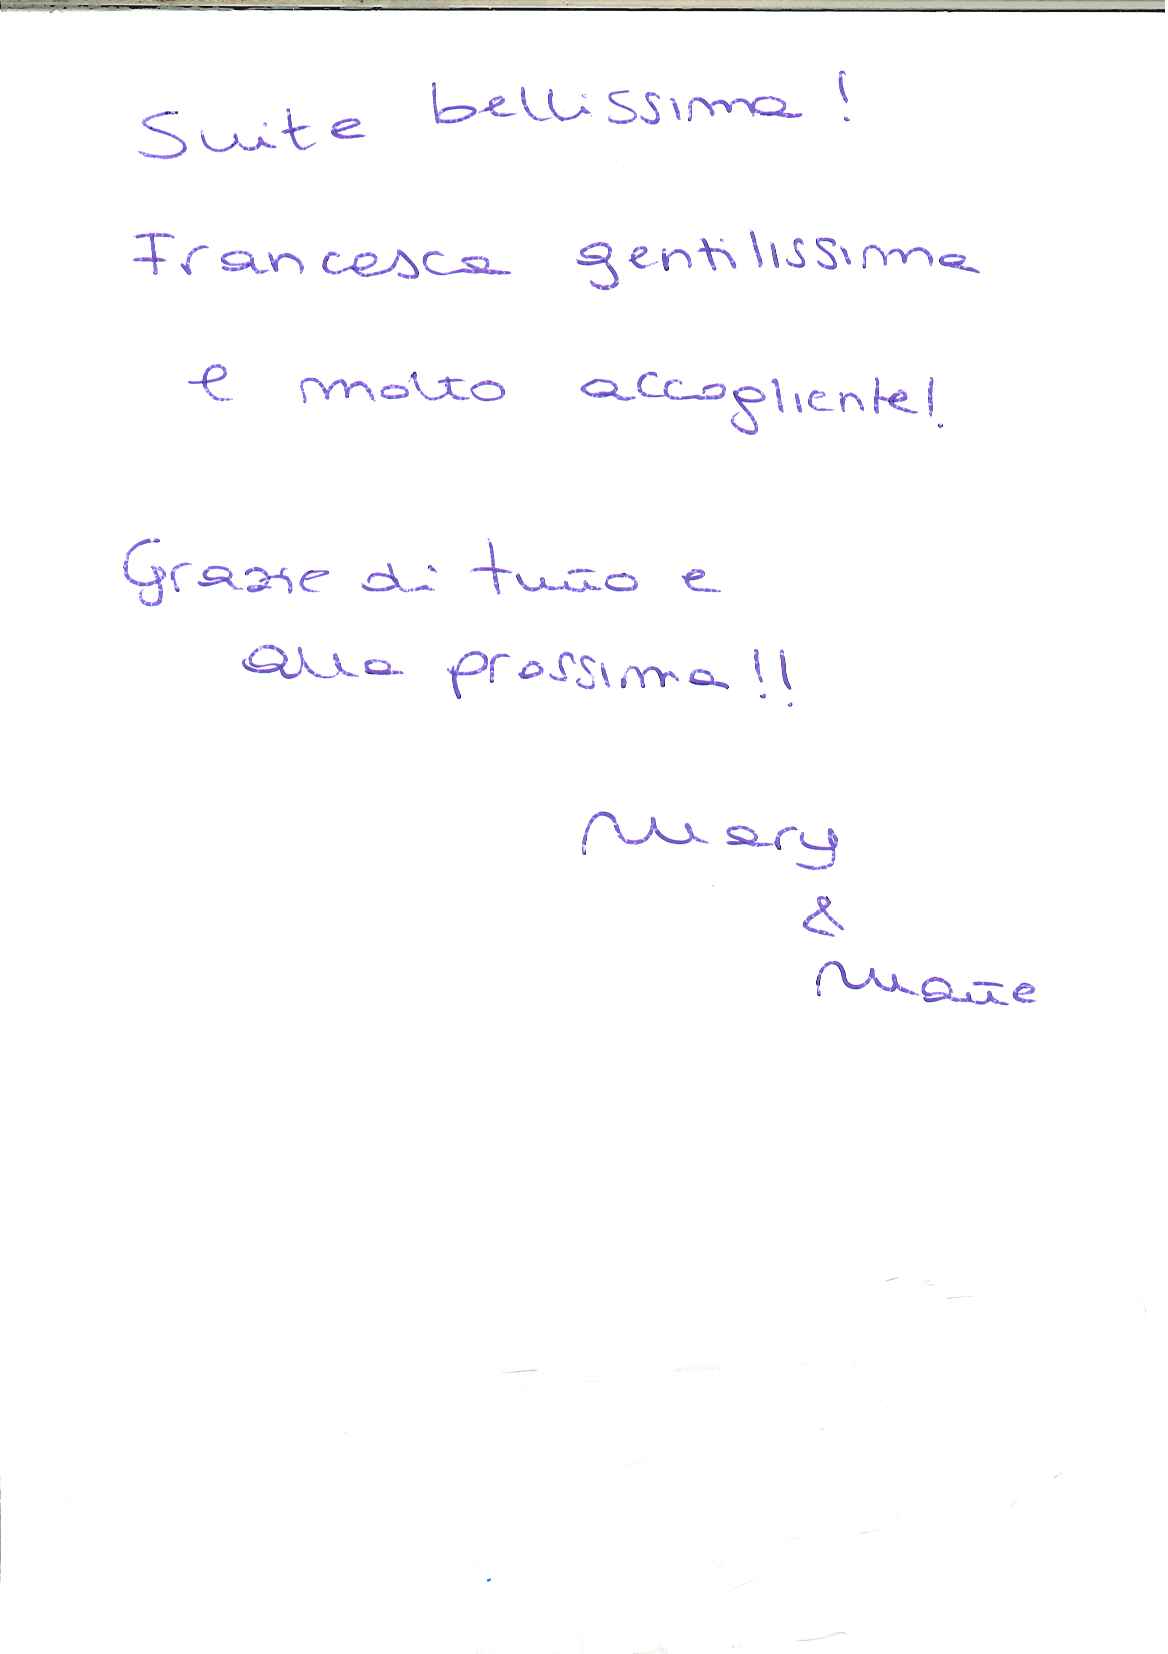 Suite bellissima!
Francesca gentilissima
e molto accogliente!
Grazie di tutto e
alla prossima!!
Mary
&
Matte